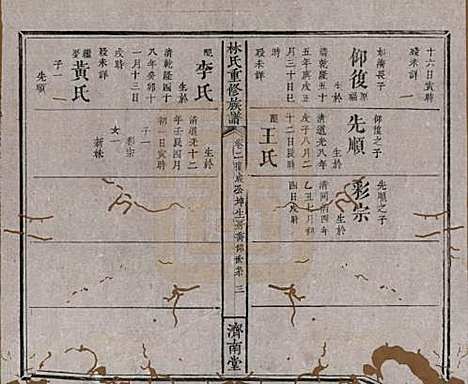 十六日寅時
歿未詳
如濱長子
仰復
生於
清乾隆五十
五年庚戌五
月三十日
戌時
歿未詳
仰復之子
先順
生於
清道光八年
戊子八月二
十二日辰時
配
王氏
先順之子
彩宗
生於
清同治四年
乙丑七月
四日戌時
林氏重修族譜
卷二
三
濟南堂
配
李氏
生於
清乾隆四十
八年癸卯十
一月十三日
戌時
歿未詳
繼
黃氏
子一
先順
生於
清道光十二
年壬辰四月
朔一日寅時
子一
彩宗
女一